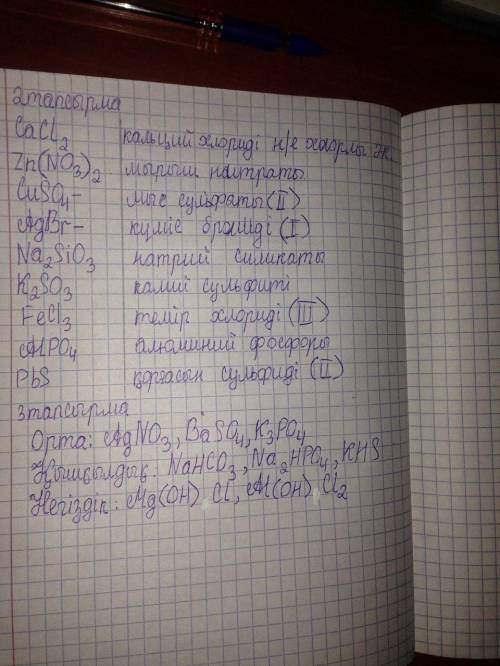 2 тапсырма
CaCl₂ кальций хлориді н/е хлорлы
Zn(NO₃)₂ мырыш нитраты
CuSO₄- мыс сульфаты (II)
AgBr- күміс бромиді (I)
Na₂SiO₃ натрий силикаты
K₂SO₃ калий сульфиті
FeCl₃ темір хлориді (III)
AlPO₄ алюминий фосфоры
PbS қорғасын сульфиді (II)
3 тапсырма
Орта: AgNO₃, BaSO₄, K₃PO₄
Қышқылдық: NaHCO₃, Na₂HPO₄, KHS
Негіздік: Mg(OH) Cl, Al(OH) Cl₂